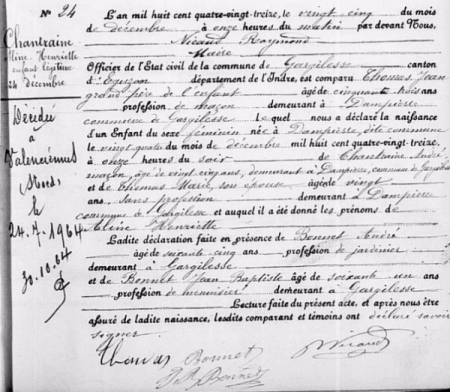 No 24
Chantraine
Aline Henriette
enfant légitime
24 décembre
Décédée
à
Valenciennes
Nord
le
24.7.1964
30.10.64
L'an mil huit cent quatre-vingt-treize, le vingt cinq du mois
de décembre à onze heures du matin par devant Nous,
Nicaud Raymond
Maire
Officier de l'Etat civil de la commune de Gargilesse canton
d'Eguzon département de l'Indre, est comparu Thomas Jean
grand père de l'enfant âgé de cinquante trois ans
profession de maçon demeurant à Dampierre
commune de Gargilesse lequel nous a déclaré la naissance
d'un Enfant du sexe féminin né à Dampierre, dite commune
le vingt quatre du mois de décembre, mil huit cent quatre-vingt-treize,
à onze heures du soir de Chantraine André
maçon, âgé de vingt cinq ans, demeurant à Dampierre, commune de Gargilesse
et de Thomas Marie, son épouse âgée de vingt
ans, sans profession demeurant à Dampierre
commune de Gargilesse et auquel il a été donné les prénoms de
Aline Henriette
Ladite déclaration faite en présence de Bonnet André
âgé de soixante cinq ans profession de jardinier
demeurant à Gargilesse
et de Bonnet Jean Baptiste âgé de soixante un ans
profession de menuisier demeurant à Gargilesse
Lecture faite du présent acte, et après nous être
assuré de ladite naissance, lesdits comparant et témoins ont déclaré savoir
signer
Thomas Bonnet Nicaud
J.B. Bonnet